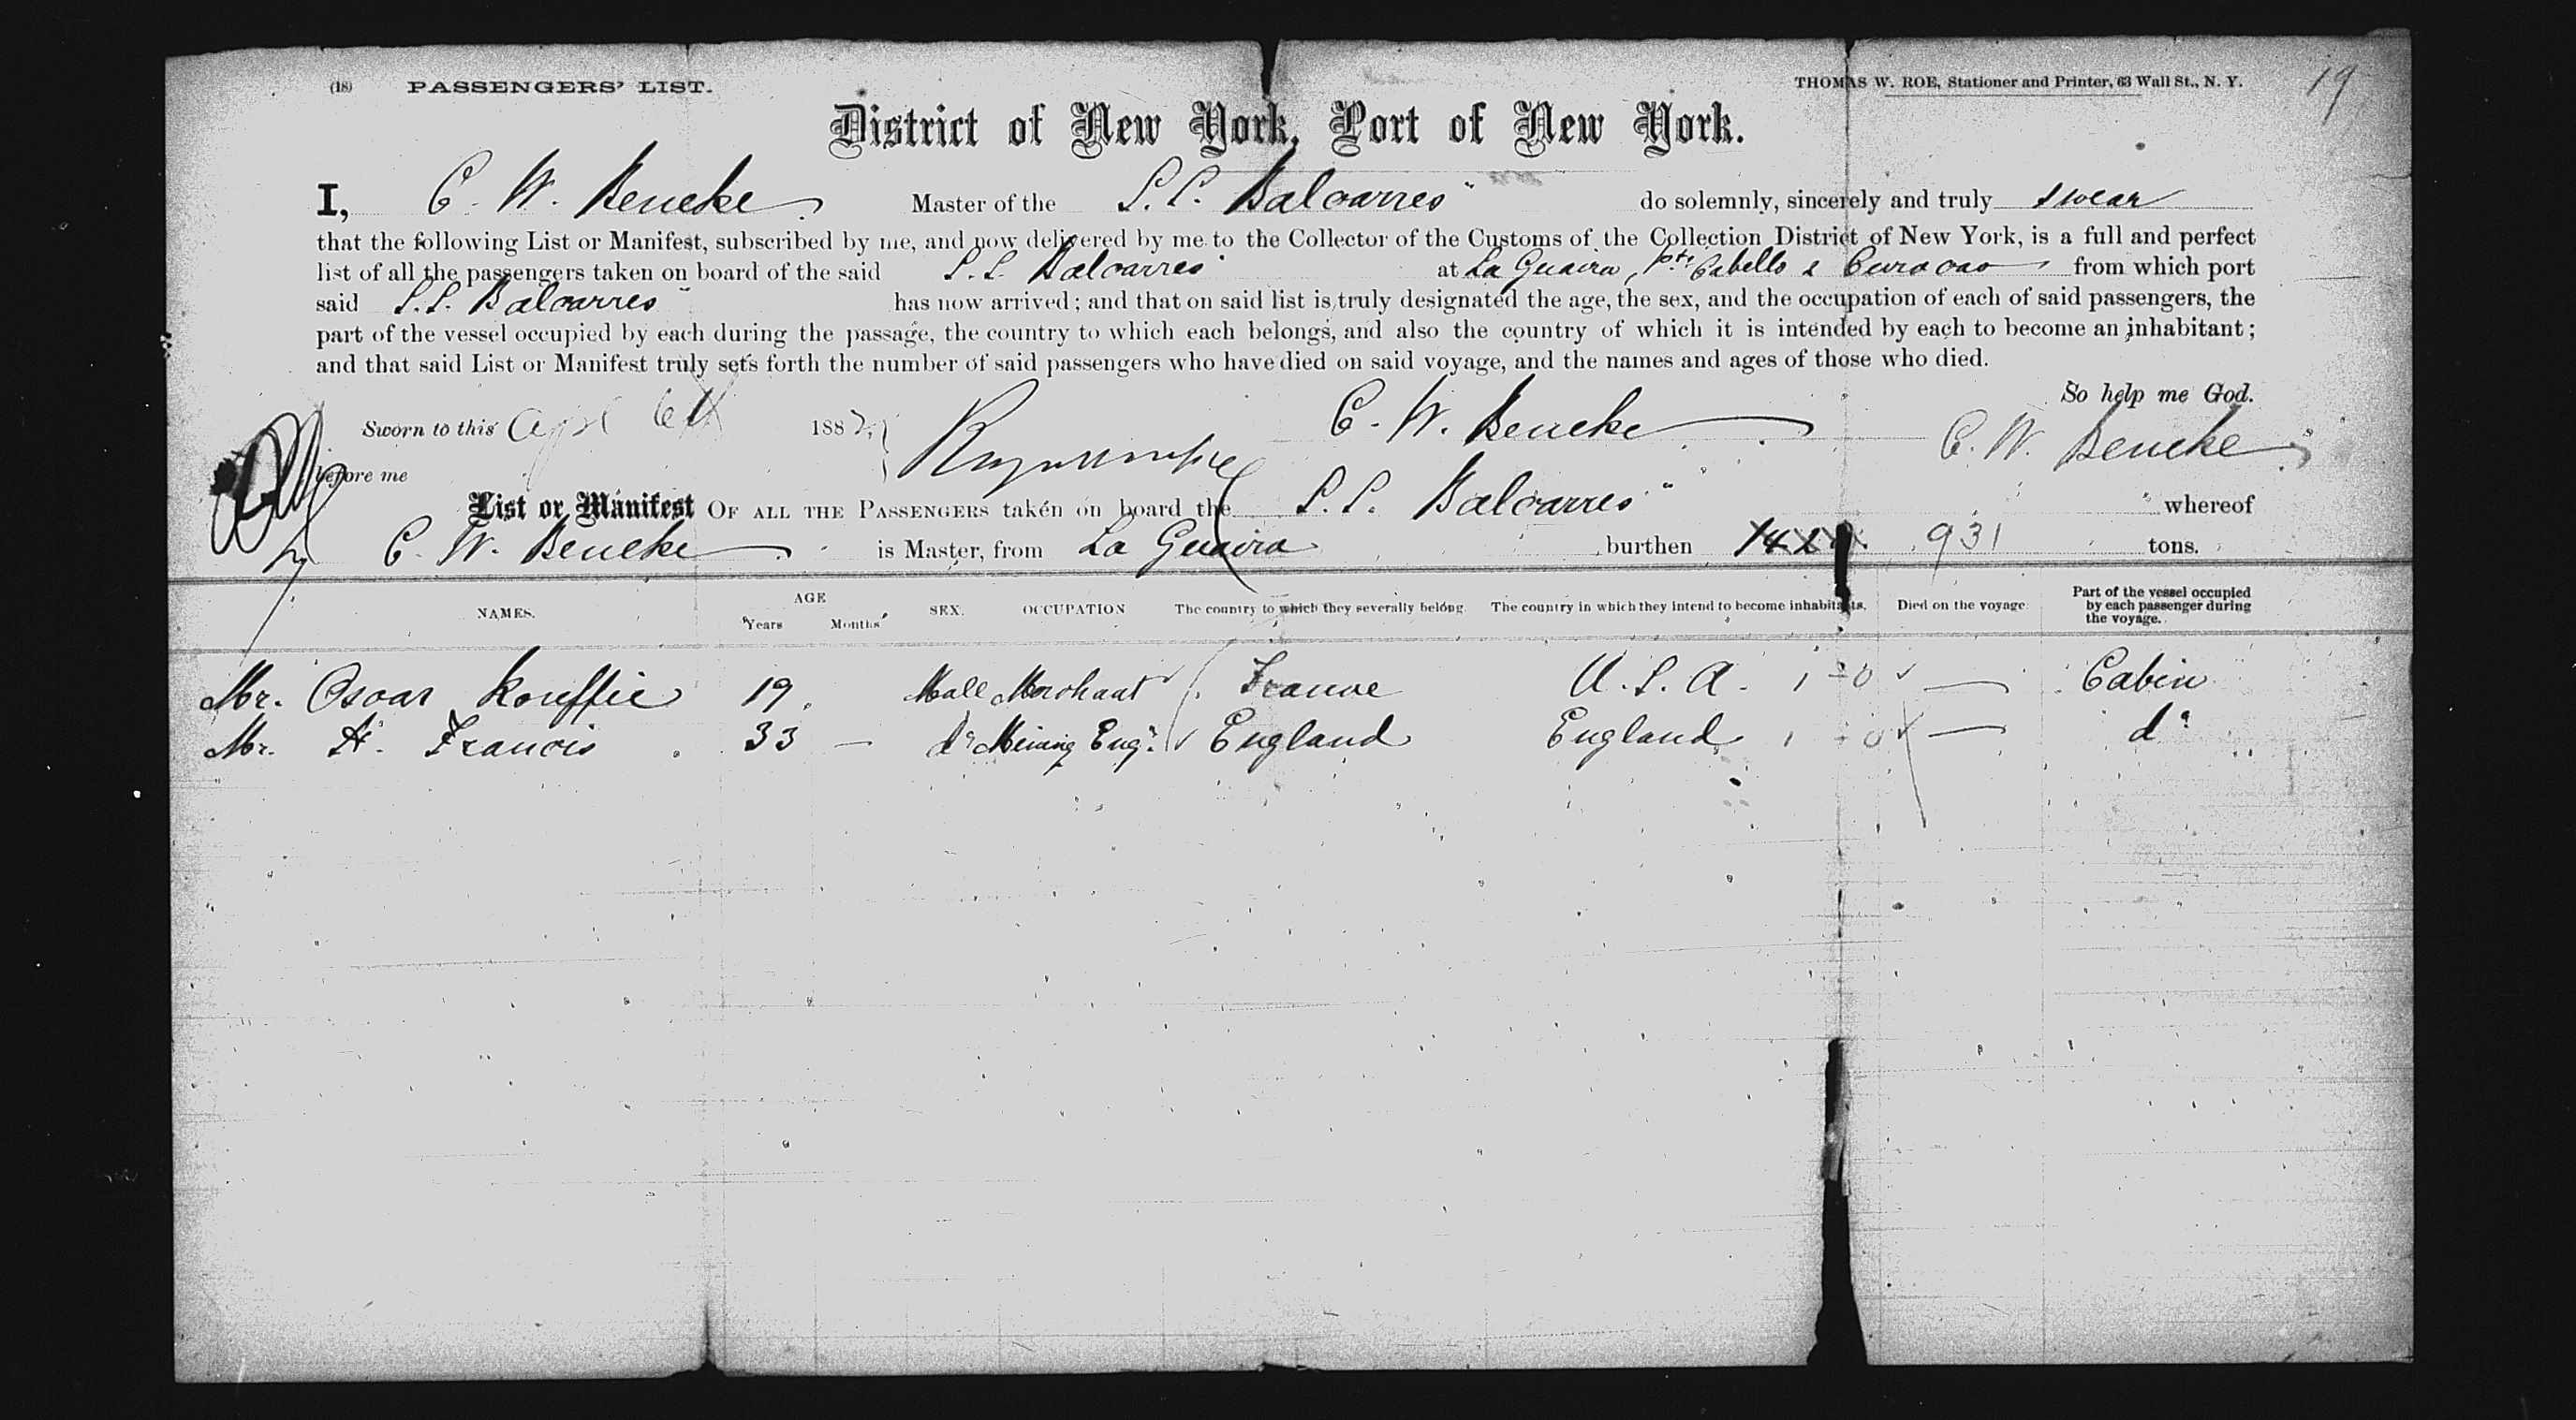 (18) PASSENGERS' LIST.
THOMAS W. ROE, Stationer and Printer, 63 Wall St., N. Y.
19
District of New York, Port of New York.
I, C. W. Beneke Master of the S.S. Balcarres" do solemnly, sincerely and truly swear
that the following List or Manifest, subscribed by me, and now delivered by me to the Collector of the Customs of the Collection District of New York, is a full and perfect
list of all the passengers taken on board of the said S.S. Balcarres" at La Guaira, Pto Cabello & Curacao from which port
said S.S. Balcarres" has now arrived; and that on said list is truly designated the age, the sex, and the occupation of each of said passengers, the
part of the vessel occupied by each during the passage, the country to which each belongs, and also the country of which it is intended by each to become an inhabitant;
and that said List or Manifest truly sets forth the number of said passengers who have died on said voyage, and the names and ages of those who died.
So help me God.
Sworn to this Apl 6th 1882 C. W. Beneke C. W. Beneke
before me
List or Manifest OF ALL THE PASSENGERS taken on board the S.S. Balcarres" whereof
C. W. Beneke is Master, from La Guaira burthen 931 tons.
NAMES. AGE Years Months SEX. OCCUPATION The country to which they severally belong. The country in which they intend to become inhabitants. Died on the voyage Part of the vessel occupied by each passenger during the voyage.
Mr. Oscar Kouffie 19 Male Merchant France U.S.A. — Cabin
Mr. H. Francis 33 — do Mining Engr. England England — do